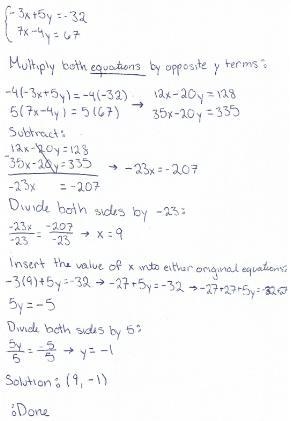 -3x+5y=-32
7x-4y=67
Multiply both equations by opposite y terms:
-4(-3x+5y)=-4(-32) → 12x-20y=128
5(7x-4y)=5(67) 35x-20y=335
Subtract:
12x-20y=128
-35x-20y=335 → -23x=-207
-23x =-207
Divide both sides by -23:
-23x/-23 = -207/-23 → x=9
Insert the value of x into either original equations:
-3(9)+5y=-32 → -27+5y=-32 → -27+27+5y=-32+27
5y=-5
Divide both sides by 5:
5y/5 = -5/5 → y=-1
Solution: (9, -1)
:Done